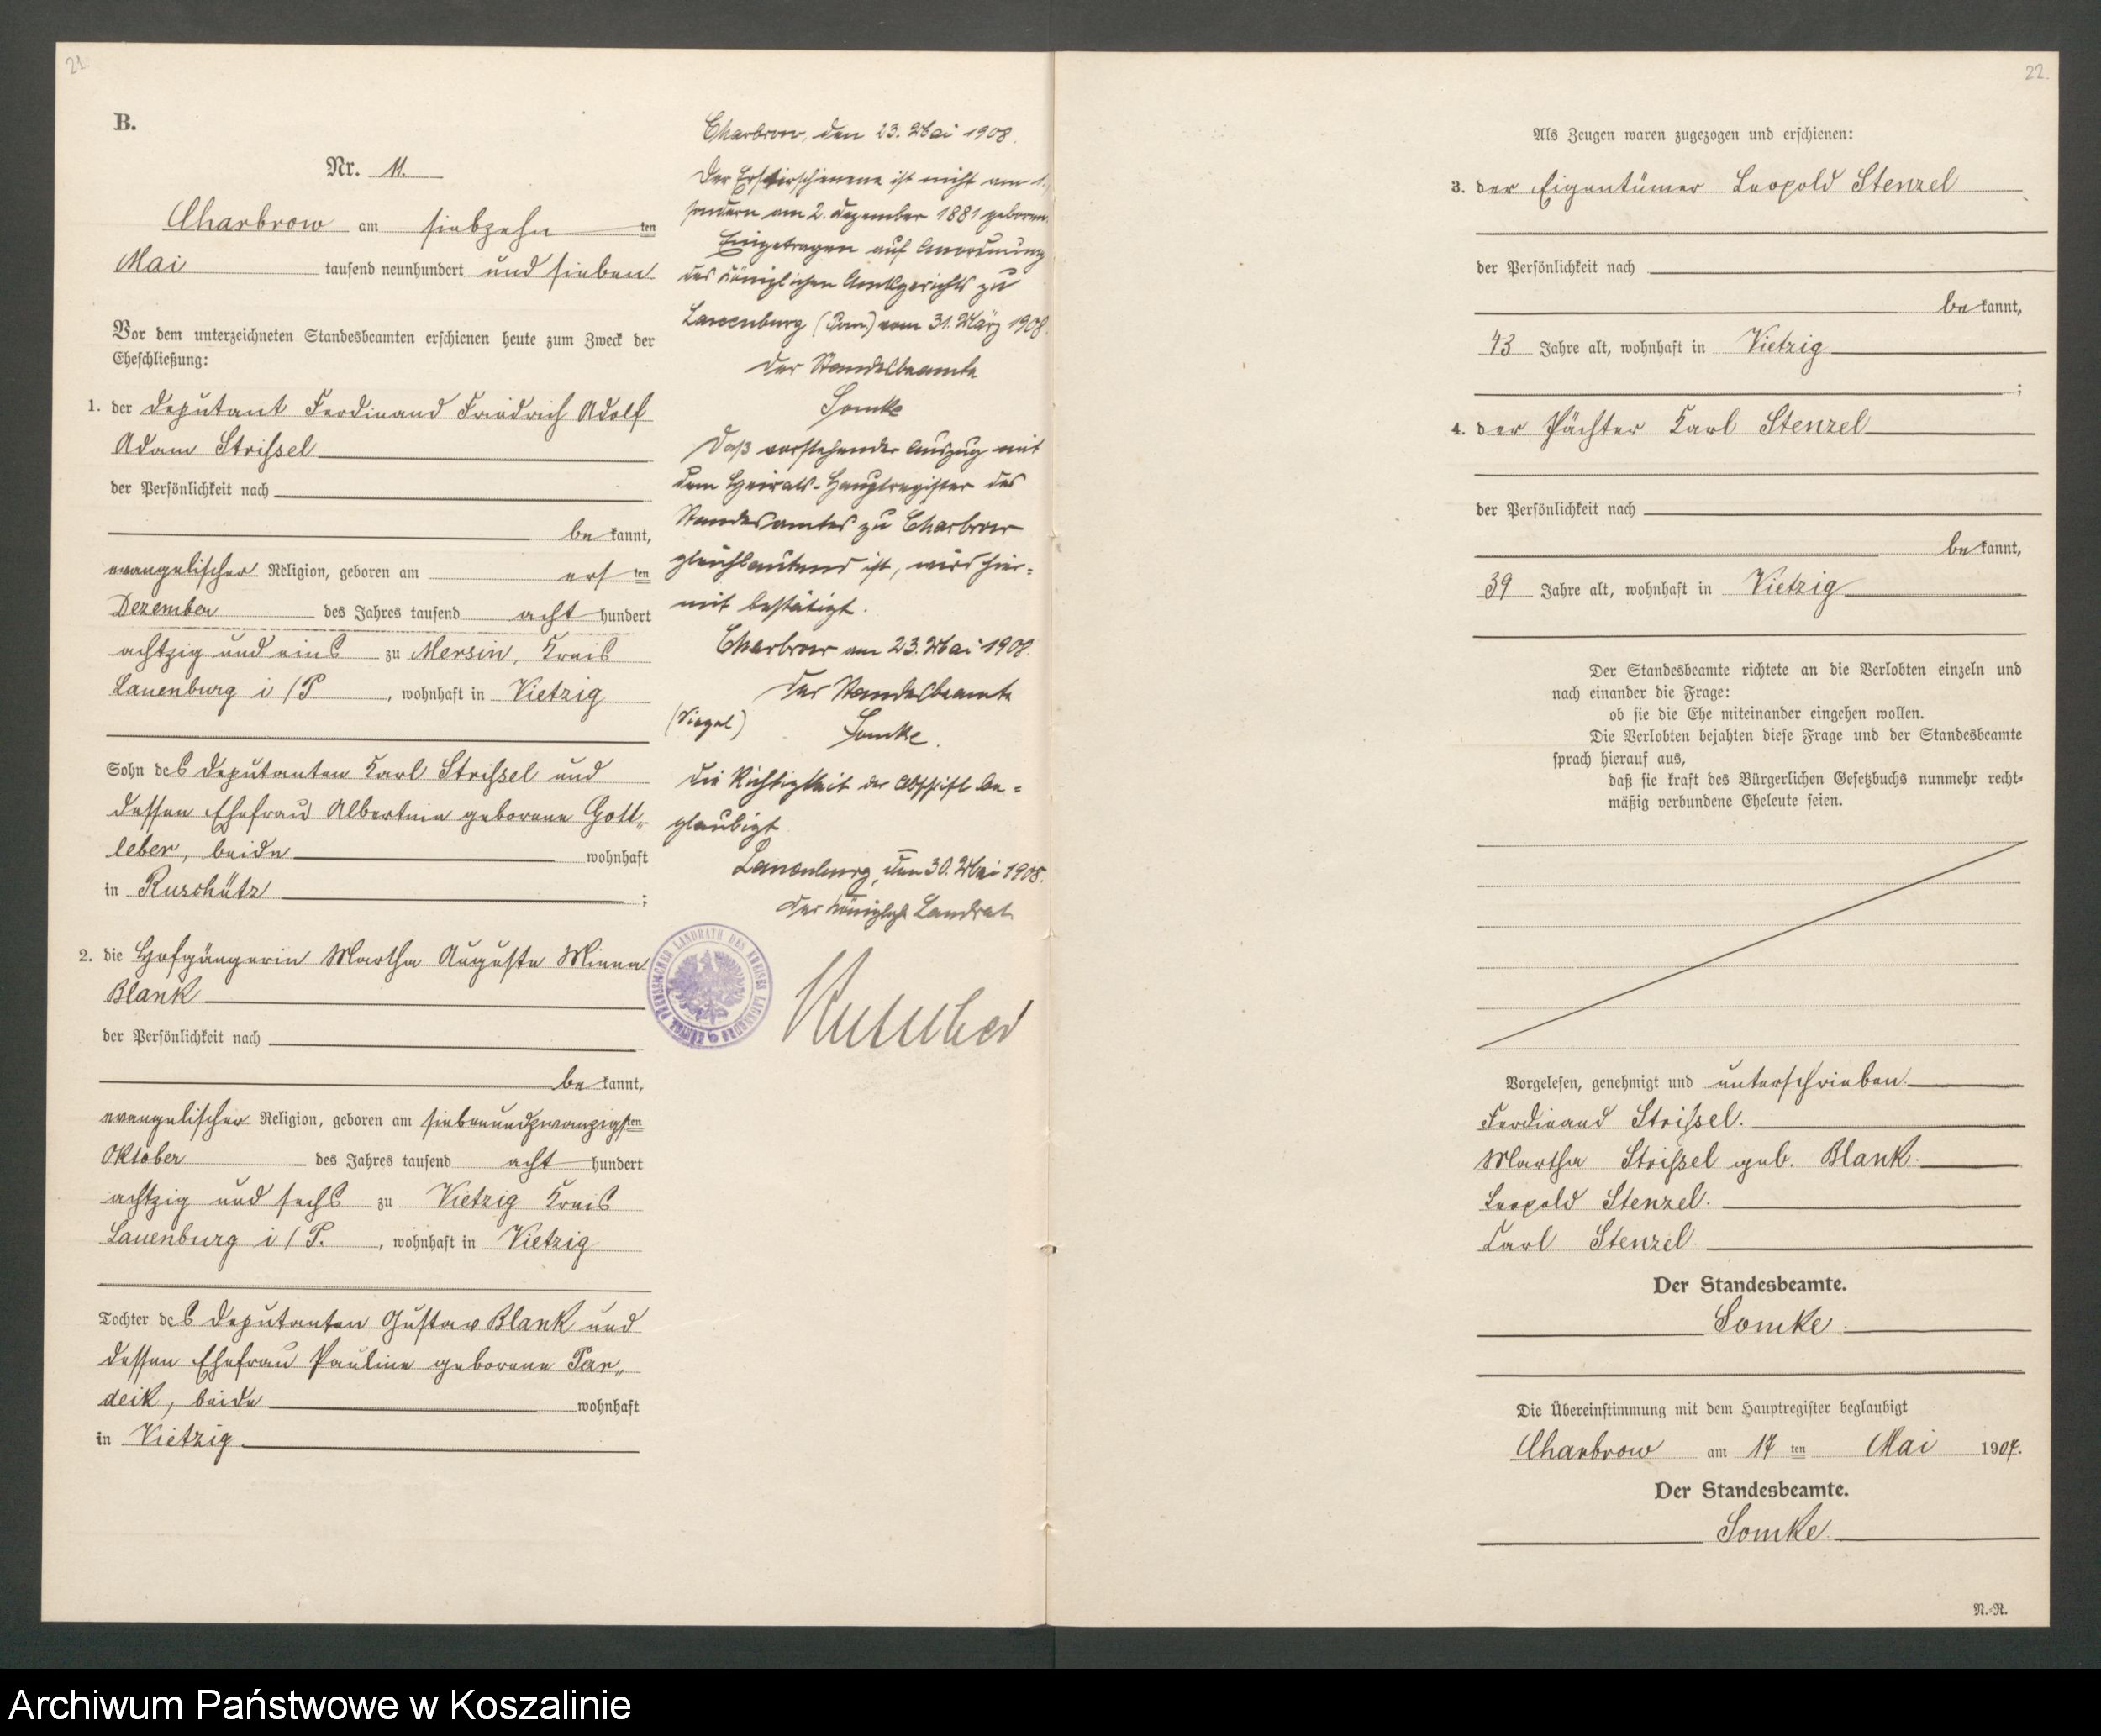 21.
B.
Nr. 11.
Charbrow am siebzehn ten
Mai tausend neunhundert und sieben
Vor dem unterzeichneten Standesbeamten erschienen heute zum Zweck der
Eheschließung:
1. der Deputant Ferdinand Friedrich Adolf
Adam Strissel
der Persönlichkeit nach
be kannt,
evangelischer Religion, geboren am ers ten
Dezember des Jahres tausend acht hundert
achtzig und eins zu Mersin, Kreis
Lauenburg i/P, wohnhaft in Vietzig
Sohn des Deputanten Karl Strissel und
dessen Ehefrau Albertine geborene Gott-
leber, beide wohnhaft
in Ruschütz ;
2. die Hofgängerin Martha Auguste Minna
Blank
der Persönlichkeit nach
be kannt,
evangelischer Religion, geboren am siebenundzwanzigsten
Oktober des Jahres tausend acht hundert
achtzig und sechs zu Vietzig Kreis
Lauenburg i/P., wohnhaft in Vietzig
Tochter des Deputanten Gustav Blank und
dessen Ehefrau Pauline geborene Par-
deik, beide wohnhaft
in Vietzig
Charbrow, den 23. Mai 1908.
Der Ersterschienene ist nicht am 1.,
sondern am 2. Dezember 1881 geboren.
Eingetragen auf Anordnung
des Königlichen Amtsgerichts zu
Lauenburg (Pom.) vom 31. März 1908.
Der Standesbeamte
Somke
Daß vorstehender Auszug mit
dem Heirats-Hauptregister des
Standesamtes zu Charbrow
gleichlautend ist, wird hier-
mit bestätigt.
Charbrow am 23. Mai 1908.
Der Standesbeamte
(Siegel) Somke.
Die Richtigkeit der Abschrift be-
glaubigt
Lauenburg, den 30. Mai 1908.
Der Königliche Landrat
KÖNIGL. PREUSSISCHER LANDRATH DES KREISES LAUENBURG
22.
Als Zeugen waren zugezogen und erschienen:
3. der Eigentümer Leopold Stenzel
der Persönlichkeit nach
be kannt,
43 Jahre alt, wohnhaft in Vietzig
;
4. der Pächter Karl Stenzel
der Persönlichkeit nach
be kannt,
39 Jahre alt, wohnhaft in Vietzig
Der Standesbeamte richtete an die Verlobten einzeln und
nach einander die Frage:
ob sie die Ehe miteinander eingehen wollen.
Die Verlobten bejahten diese Frage und der Standesbeamte
sprach hierauf aus,
daß sie kraft des Bürgerlichen Gesetzbuchs nunmehr recht-
mäßig verbundene Eheleute seien.
Vorgelesen, genehmigt und unterschrieben
Ferdinand Strissel.
Martha Strissel geb. Blank.
Leopold Stenzel.
Karl Stenzel.
Der Standesbeamte.
Somke.
Die Übereinstimmung mit dem Hauptregister beglaubigt
Charbrow am 17 ten Mai 1907.
Der Standesbeamte.
Somke.
N.-R.
Archiwum Państwowe w Koszalinie